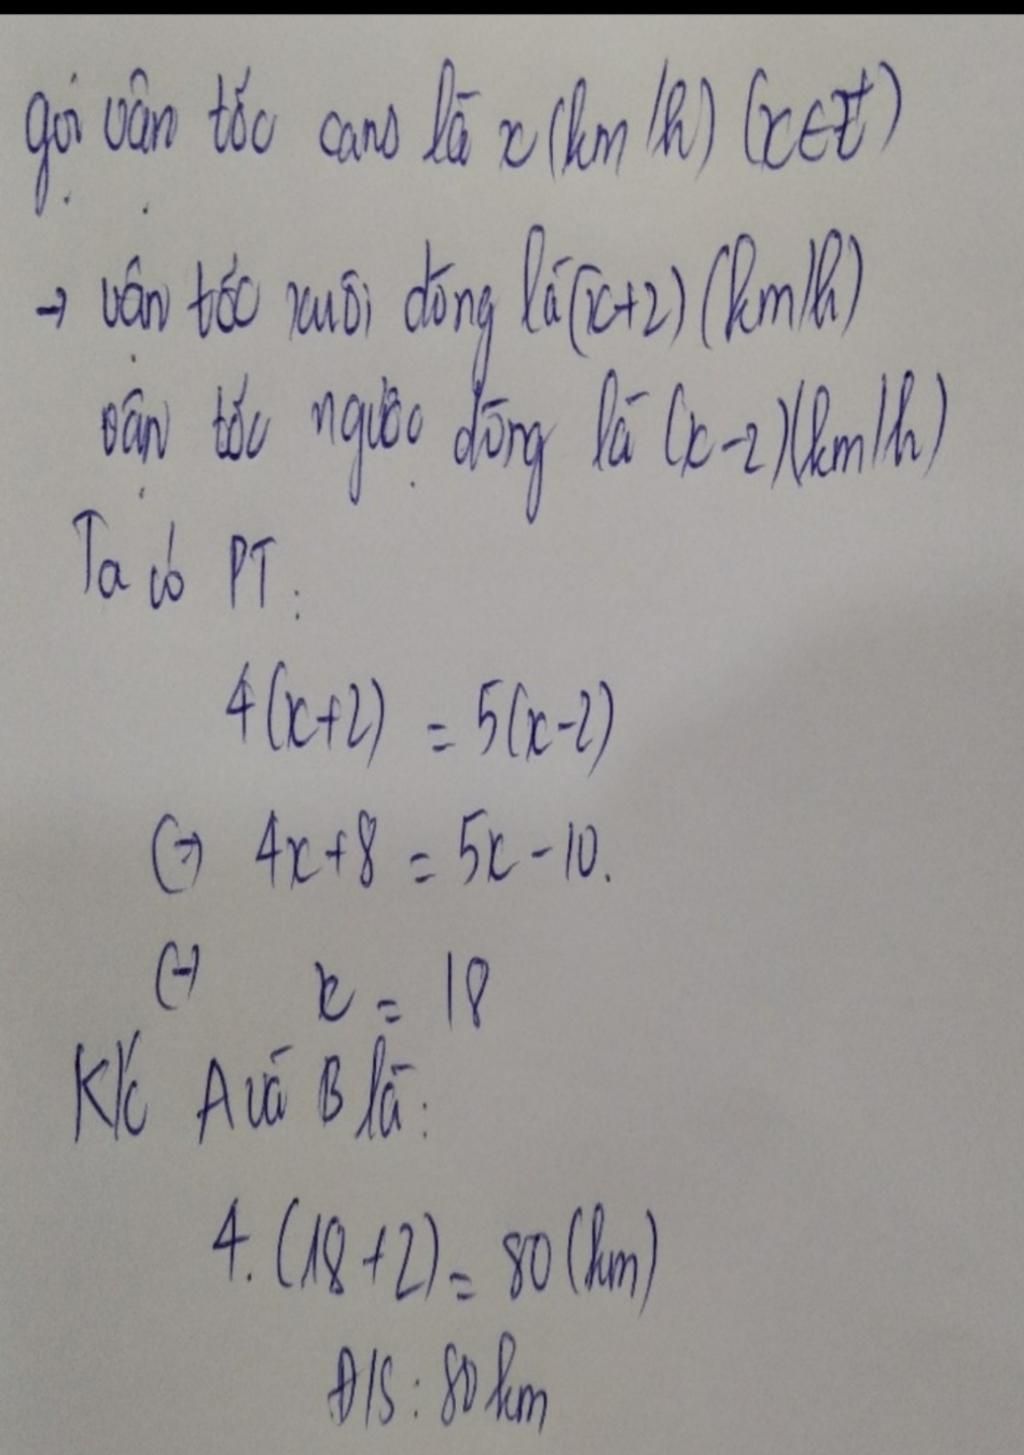 gọi vận tốc cano là x (km/h) (x∈Z⁺)
→ vận tốc xuôi dòng là (x+2) (km/h)
vận tốc ngược dòng là (x-2) (km/h)
Ta có PT:
4(x+2) = 5(x-2)
(=) 4x+8 = 5x-10.
(=) x = 18
K/c A và B là:
4.(18+2) = 80 (km)
Đ/S: 80 km